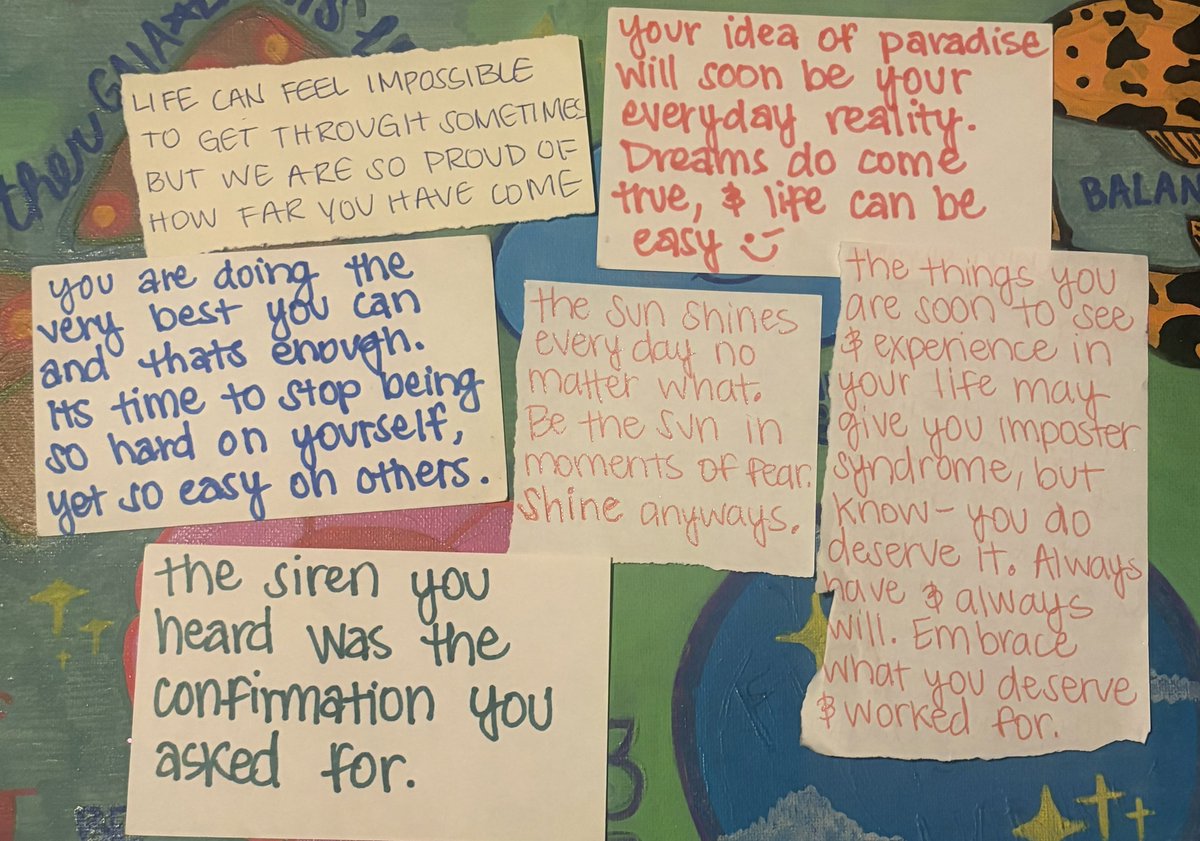 LIFE CAN FEEL IMPOSSIBLE
TO GET THROUGH SOMETIMES
BUT WE ARE SO PROUD OF
HOW FAR YOU HAVE COME
your idea of paradise
will soon be your
everyday reality.
Dreams do come
true, & life can be
easy
you are doing the
very best you can
and thats enough.
its time to stop being
so hard on yourself,
yet so easy on others.
the sun shines
every day no
matter what.
Be the sun in
moments of fear.
Shine anyways.
the things you
are soon to see
& experience in
your life may
give you imposter
syndrome, but
know- you do
deserve it. Always
have & always
will. Embrace
what you deserve
& worked for.
the siren you
heard was the
confirmation you
asked for.
BALAN